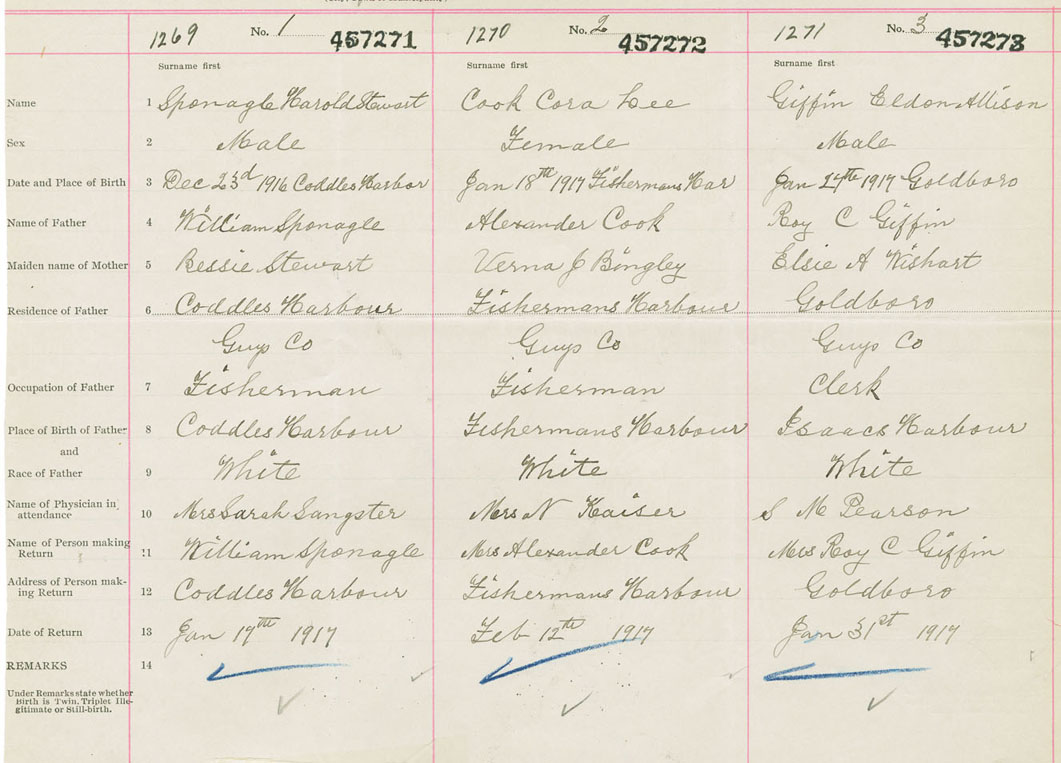 1269 No. 1 457271 1270 No. 2 457272 1271 No. 3 457273
Surname first Surname first Surname first
Name 1 Sponagle Harold Stewart Cook Cora Lee Giffin Eldon Allison
Sex 2 Male Female Male
Date and Place of Birth 3 Dec 23rd 1916 Coddles Harbor Jan 18th 1917 Fishermans Har Jan 27th 1917 Goldboro
Name of Father 4 William Sponagle Alexander Cook Roy C Giffin
Maiden name of Mother 5 Bessie Stewart Verna J Bingley Elsie A Wishart
Residence of Father 6 Coddles Harbour Fishermans Harbour Goldboro
Guys Co Guys Co Guys Co
Occupation of Father 7 Fisherman Fisherman Clerk
Place of Birth of Father 8 Coddles Harbour Fishermans Harbour Isaacs Harbour
and
Race of Father 9 White White White
Name of Physician in
attendance 10 Mrs Sarah Sangster Mrs N Kaiser S M Pearson
Name of Person making
Return 11 William Sponagle Mrs Alexander Cook Mrs Roy C Giffin
Address of Person mak-
ing Return 12 Coddles Harbour Fishermans Harbour Goldboro
Date of Return 13 Jan 17th 1917 Feb 12th 1917 Jan 31st 1917
REMARKS 14
Under Remarks state whether
Birth is Twin, Triplet Ille-
gitimate or Still-birth.